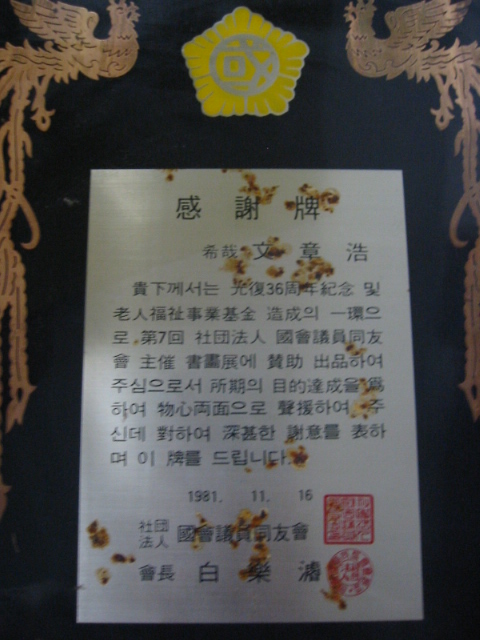 感 謝 牌
希哉 文 章 浩
貴下께서는 光復36周年紀念 및
老人福祉事業基金 造成의 一環으
로 第7回 社団法人 國會議員同友
會 主催 書畵展에 贊助 出品하여
주심으로서 所期의 目的達成을 爲
하여 物心両面으로 聲援하여 주
신데 對하여 深甚한 謝意를 表하
며 이 牌를 드립니다.
1981. 11. 16
社団
法人 國會議員同友會
會長 白 樂 濬